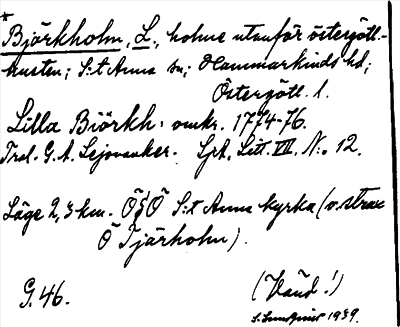 *
Björkholm, L., holme utanför östergötl.-
kusten; S:t Anna sn; Hammarkinds hd;
Östergötl. l.
Lilla Biörkh: omkr. 1774-76.
G. A. Lejonanker. SjK, Litt. VII, N:o 12.
Läge 2,3 km. ÖSÖ S:t Anna kyrka (o. strax
Ö Tjärholm).
G. 46.
(Vänd!)
1939.